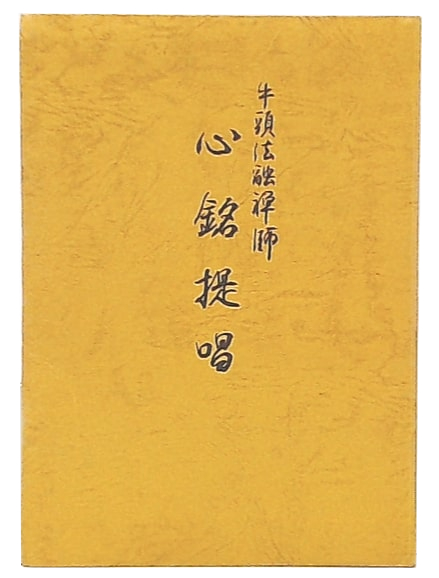 牛頭法融禅師
心銘提唱